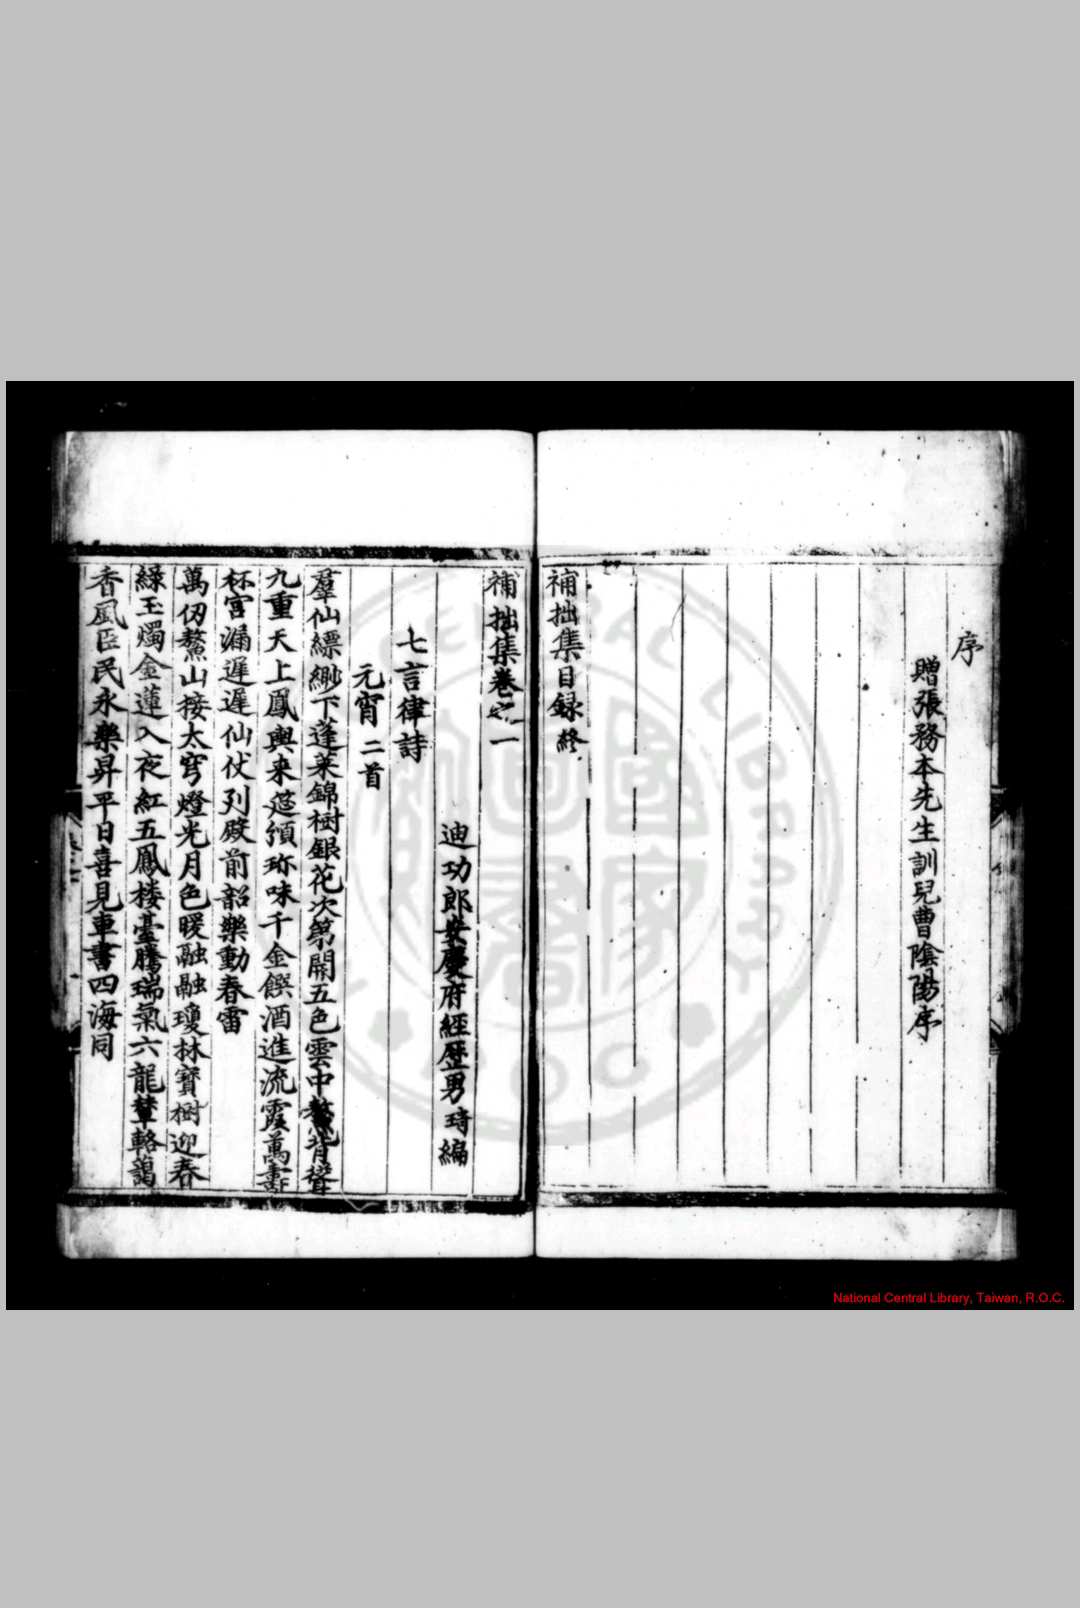 序
贈張務本先生訓兒曹陰陽序
補拙集目録終
補拙集卷之一
迪功郎安慶府經歷男琦編
七言律詩
元宵二首
羣仙縹緲下蓬萊錦樹銀花次第開五色雲中鰲背聳
九重天上鳳輿来筵頒珎味千金饌酒進流霞萬壽
杯宮漏遲遲仙仗列殿前韶樂動春雷
萬仞鰲山接太穹燈光月色暖融融瓊林寶樹迎春
緑玉燭金蓮入夜紅五鳳楼臺騰瑞氣六龍輦輅靄
香風臣民永樂昇平日喜見車書四海同
National Central Library, Taiwan, R.O.C.